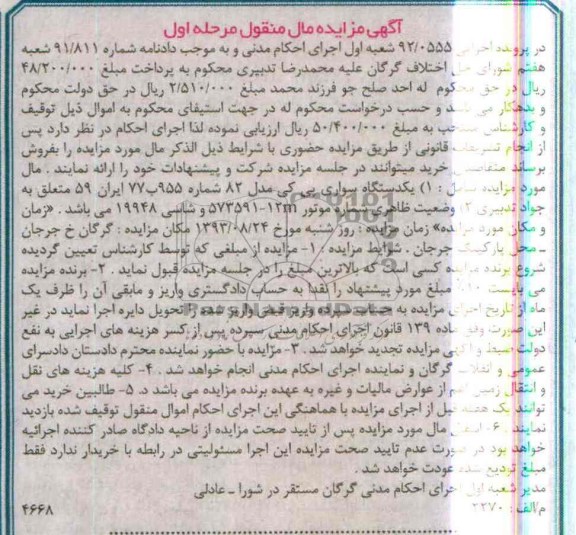 آگهی مزایده مال منقول مرحله اول
در پرونده اجرایی ۹۲/۰۵۵۵ شعبه اول اجرای احکام مدنی و به موجب دادنامه شماره ۹۱/۸۱۱ شعبه
هفتم شورای حل اختلاف گرگان علیه محمدرضا تدبیری محکوم به پرداخت مبلغ ۴۸/۲۰۰/۰۰۰
ریال در حق محکوم له احد صلح جو فرزند محمد مبلغ ۲/۵۱۰/۰۰۰ ریال در حق دولت محکوم
و بدهکار می باشد و حسب درخواست محکوم له در جهت استیفای محکوم به اموال ذیل توقیف
و کارشناس منتخب به مبلغ ۵۰/۴۰۰/۰۰۰ ریال ارزیابی نموده لذا اجرای احکام در نظر دارد پس
از انجام تشریفات قانونی از طریق مزایده حضوری با شرایط ذیل الذکر مال مورد مزایده را بفروش
برساند متقاضیین خرید میتوانند در جلسه مزایده شرکت و پیشنهادات خود را ارائه نمایند . مال
مورد مزایده شامل : ۱) یکدستگاه سواری پی کی مدل ۸۲ شماره ۹۵۵ب۷۷ ایران ۵۹ متعلق به
جواد تدبیری ۲) وضعیت ظاهری شماره موتور ۱۲m-۵۷۳۵۹۱ و شاسی ۱۹۹۴۸ می باشد . «زمان
و مکان مورد مزایده» زمان مزایده : روز شنبه مورخ ۱۳۹۳/۰۸/۲۴ مکان مزایده : گرگان خ جرجان
ـ محل پارکینگ جرجان . شرایط مزایده : ۱- مزایده از مبلغی که توسط کارشناس تعیین گردیده
شروع برنده مزایده کسی است که بالاترین مبلغ را در جلسه مزایده قبول نماید . ۲- برنده مزایده
می بایست ۱۰٪ مبلغ مورد پیشنهاد را نقدا به حساب دادگستری واریز و مابقی آن را ظرف یک
ماه از تاریخ اجرای مزایده به حساب سپرده واریز فیش واریز تحویل دایره اجرا نماید در غیر
این صورت وفق ماده ۱۳۹ قانون اجرای احکام مدنی سپرده پس از کسر هزینه های اجرایی به نفع
دولت ضبط و آگهی مزایده تجدید خواهد شد . ۳- مزایده با حضور نماینده محترم دادستان دادسرای
عمومی و انقلاب گرگان و نماینده اجرای احکام مدنی انجام خواهد شد . ۴- کلیه هزینه های نقل
و انتقال زمین اعم از عوارض مالیات و غیره به عهده برنده مزایده می باشد د. ۵- طالبین خرید می
توانند یک هفته قبل از اجرای مزایده با هماهنگی این اجرای احکام اموال منقول توقیف شده بازدید
نمایند . ۶- انتقال مال مورد مزایده پس از تایید صحت مزایده از ناحیه دادگاه صادر کننده اجرائیه
خواهد بود در صورت عدم تایید صحت مزایده این اجرا مسئولیتی در رابطه با خریدار ندارد فقط
مبلغ تودیع شده عودت خواهد شد .
مدیر شعبه اول اجرای احکام مدنی گرگان مستقر در شورا ـ عادلی
م/الف : ۲۲۷۰
۴۶۶۸